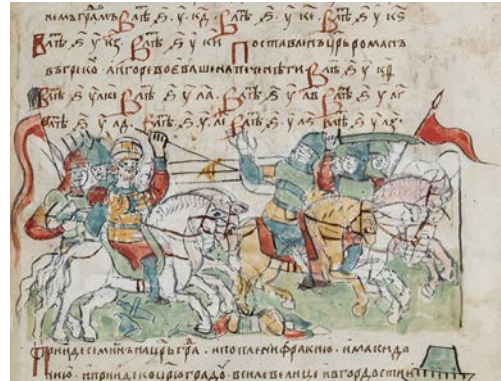 Влѣ ѕ у кд Влѣ ѕ у ке Влѣ ѕ у кѕ
Влѣ ѕ у кз Влѣ ѕ у ки Поставленъ црь романъ
въ греко а игорє воєваше на печенѣги Влѣ ѕ у кѳ
Влѣ ѕ у Влѣ ѕ у ла Влѣ ѕ у лв Влѣ ѕ у лг
Влѣ ѕ у лд Влѣ ѕ у ле Влѣ ѕ у лѕ Влѣ ѕ у лз
Приидє на црьгра · и поплени фракию · и макидо
нию · и приидє ко црюградо · в силе велице и в гордости